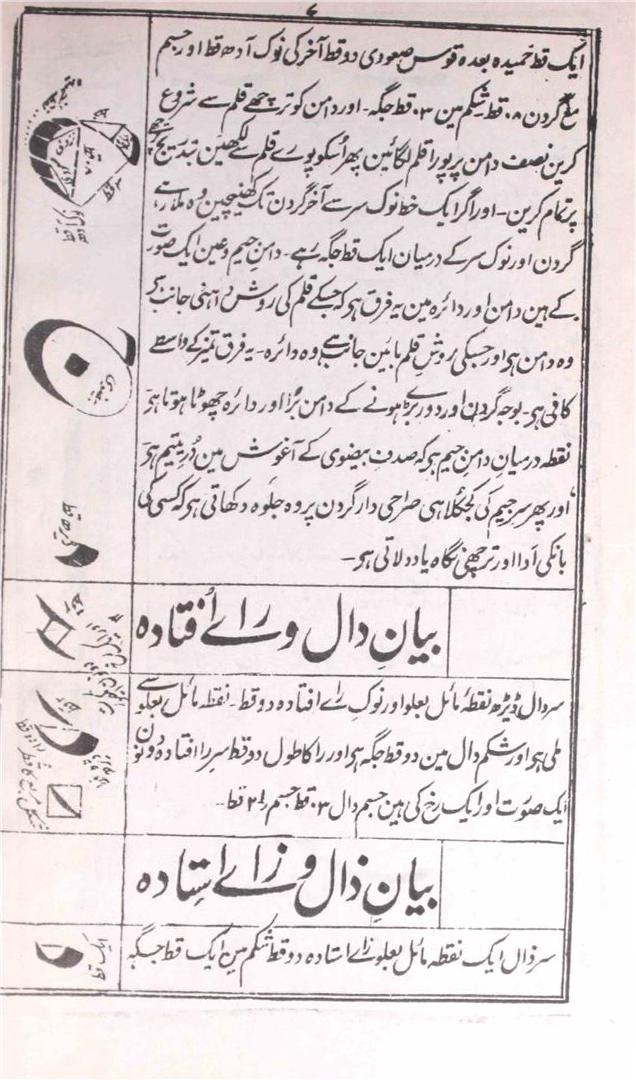 ۷
ایک قط خمیدہ بعدہ قوس صعودی دو قط آخر کی نوک آدھ قط اور جسم
مع گردن ۰۸ قط۔ شکم مین ۰۳ قط جگہ۔ اور دامن کو ترچھے قلم سے شروع
کرین نصف دامن پر پورا قلم لگائین پھر اُسکو پورے قلم سے لکھین بتدریج
پر تمام کرین۔ اور اگر ایک خط نوک سر سے آخر گردن تک کھینچین وہ ملا رہے
گردن اور نوک سر کے درمیان ایک قط جگہ رہے۔ دامن جیم و عین ایک صورت
کے ہین دامن اور دائرہ مین یہ فرق ہی کہ جسکے قلم کی روش داہنی جانب ہے
وہ دامن ہی اور جسکی روش قلم بائین جانب ہے وہ دائرہ۔ یہ فرق تمیز کے واسطے
کافی ہی۔ بوجہ گردن اور دور بڑا ہونے کے دامن بڑا اور دائرہ چھوٹا ہوتا ہی
نقطہ درمیان دامن جیم ہی کہ صدف بیضوی کے آغوش مین دُرِ یتیم ہی
اور پھر سر جیم کی کجکلاہی صراحی دار گردن پر وہ جلوہ دکھاتی ہی کہ کسی کی
بانکی ادا اور ترچھی نگاہ یاد دلاتی ہی۔
بیانِ دال و رائے اُفتادہ
سر دال ڈیڑھ نقطہ مائل بعلو اور نوکِ رائے افتادہ دو قط۔ نقطہ مائل بعلو سے
ملی ہی اور شکم دال مین دو قط جگہ ہی اور را کا طول دو قط سر را افتادہ و نون
ایک صورت اور ایک رخ کی ہین جسم دال ۰۳ قط جسم را ۲ قط۔
بیانِ ذال و زائے اِستادہ
سر ذال ایک نقطہ مائل بعلو زائے استادہ دو قط شکم مین ایک قط جگہ
بیضوی
شکل مربع کا قط
ایک قط